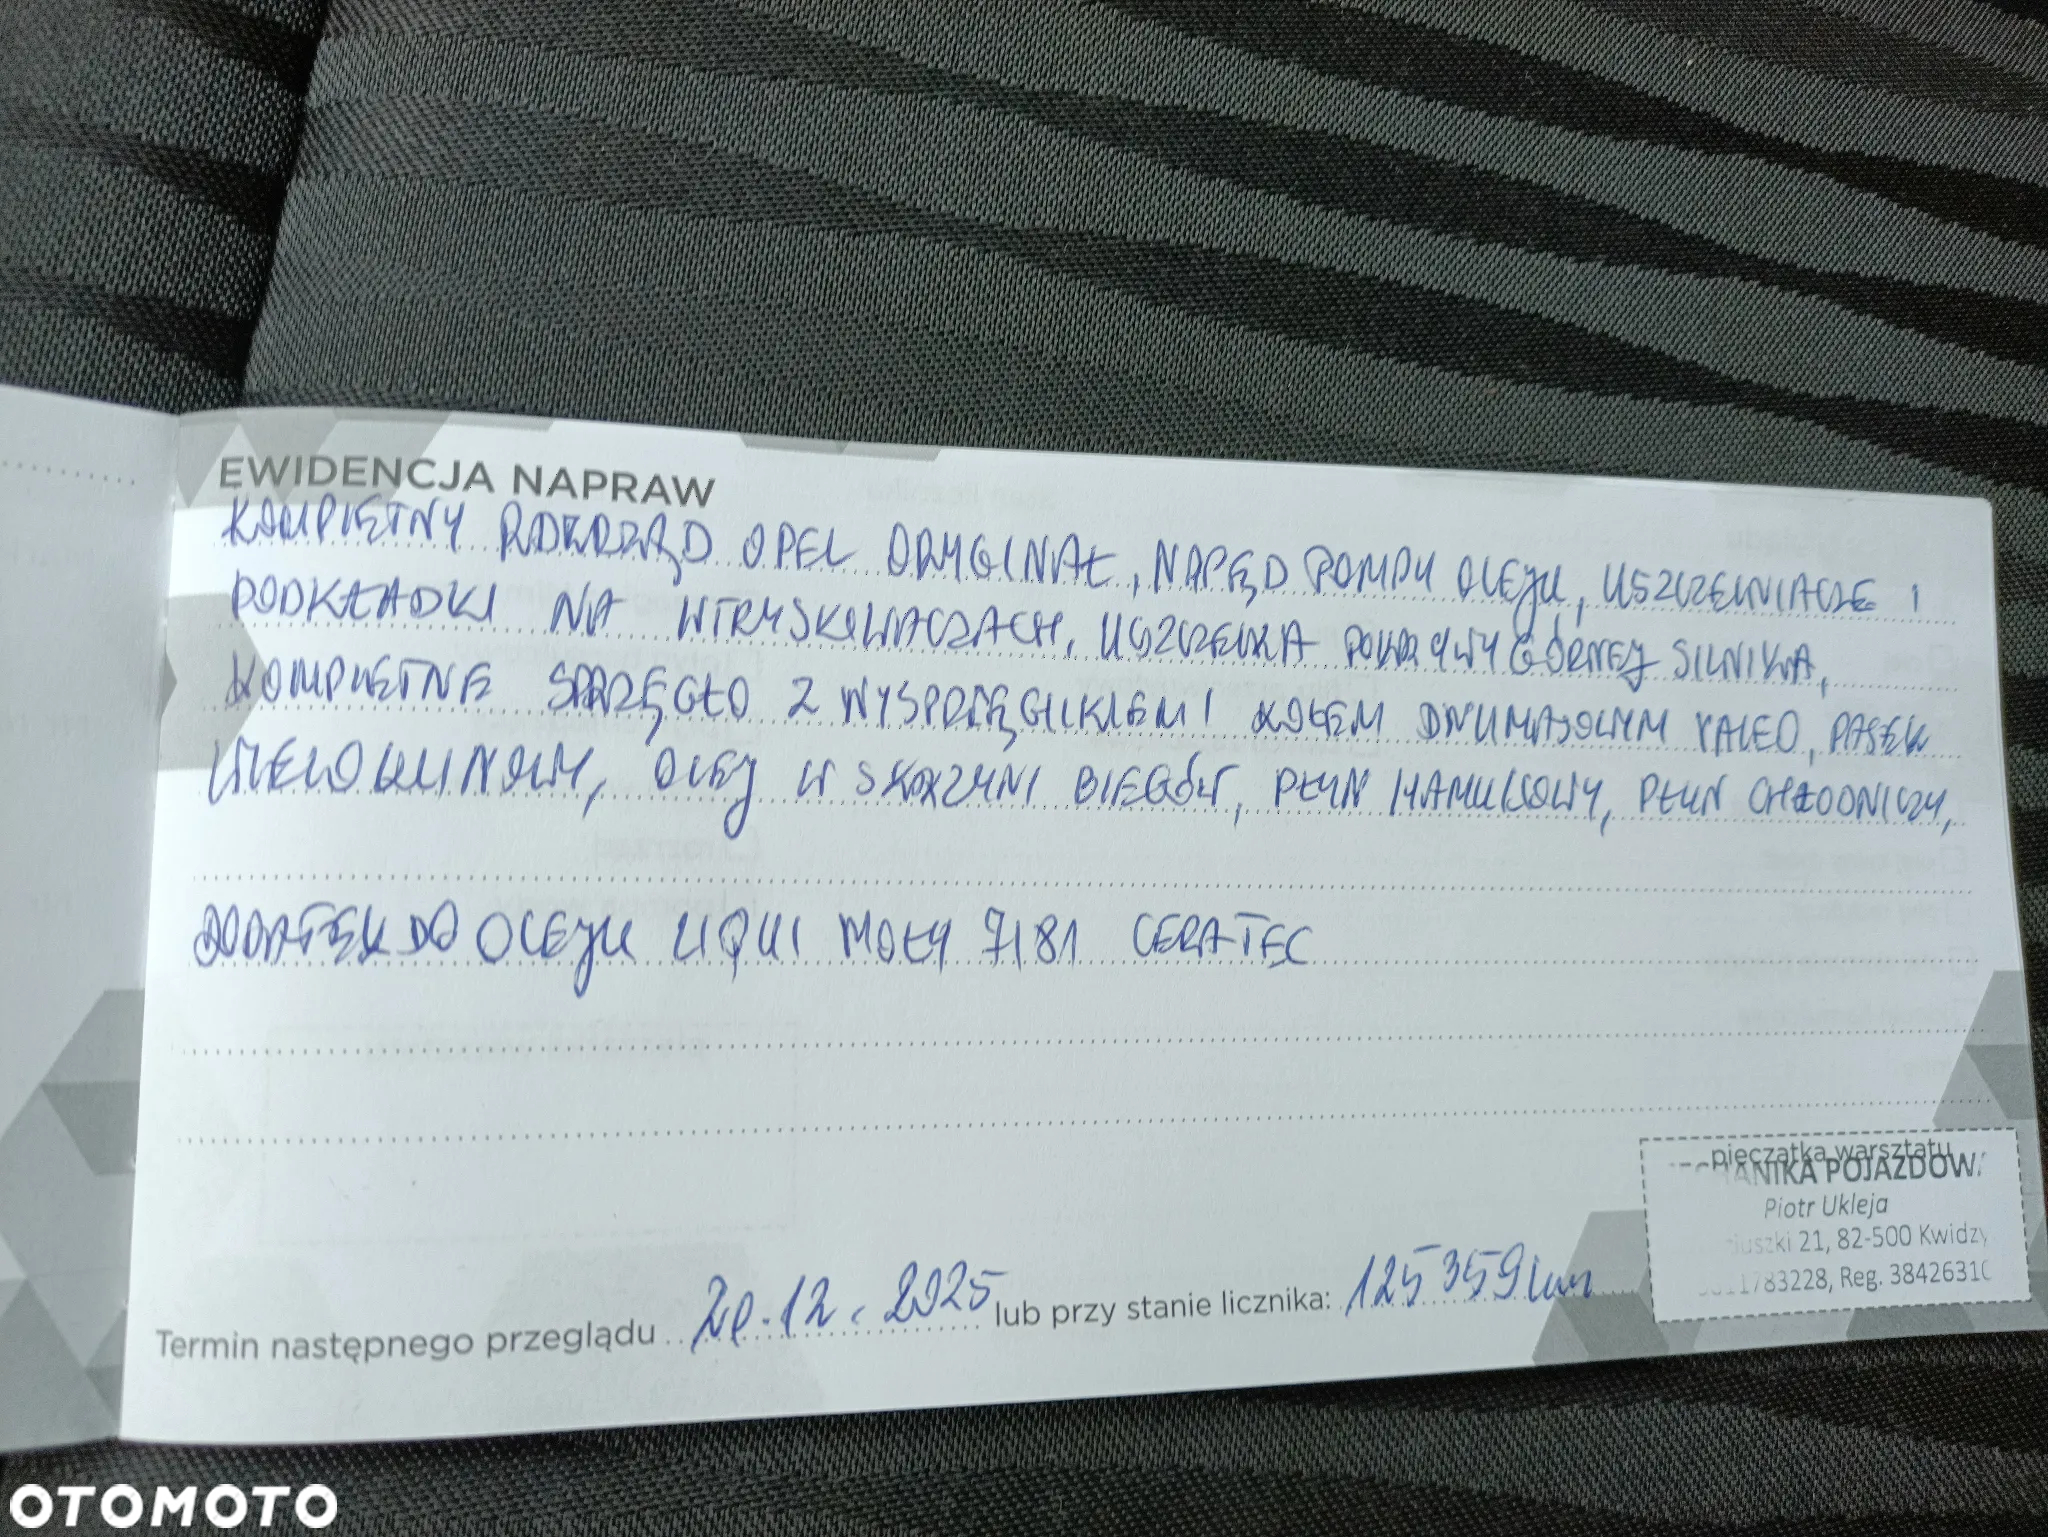 EWIDENCJA NAPRAW
KOMPLETNY ROZRZĄD OPEL ORYGINAŁ, NAPĘD POMPY OLEJU, USZCZELNIACZE I
PODKŁADKI NA WTRYSKIWACZACH, USZCZELKA POKRYWY GÓRNEJ SILNIKA,
KOMPLETNE SPRZĘGŁO Z WYSPRZĘGLIKIEM I KOŁEM DWUMASOWYM VALEO, PASEK
WIELOKLINOWY, OLEJ W SKRZYNI BIEGÓW, PŁYN HAMULCOWY, PŁYN CHŁODNICZY,
DODATEK DO OLEJU LIQUI MOLY 7181 CERATEC
pieczątka warsztatu
ANIKA POJAZDOW
Piotr Ukleja
iuszki 21, 82-500 Kwidzy
783228, Reg. 3842631
Termin następnego przeglądu 20.12.2025 lub przy stanie licznika: 125 359 km
OTOMOTO